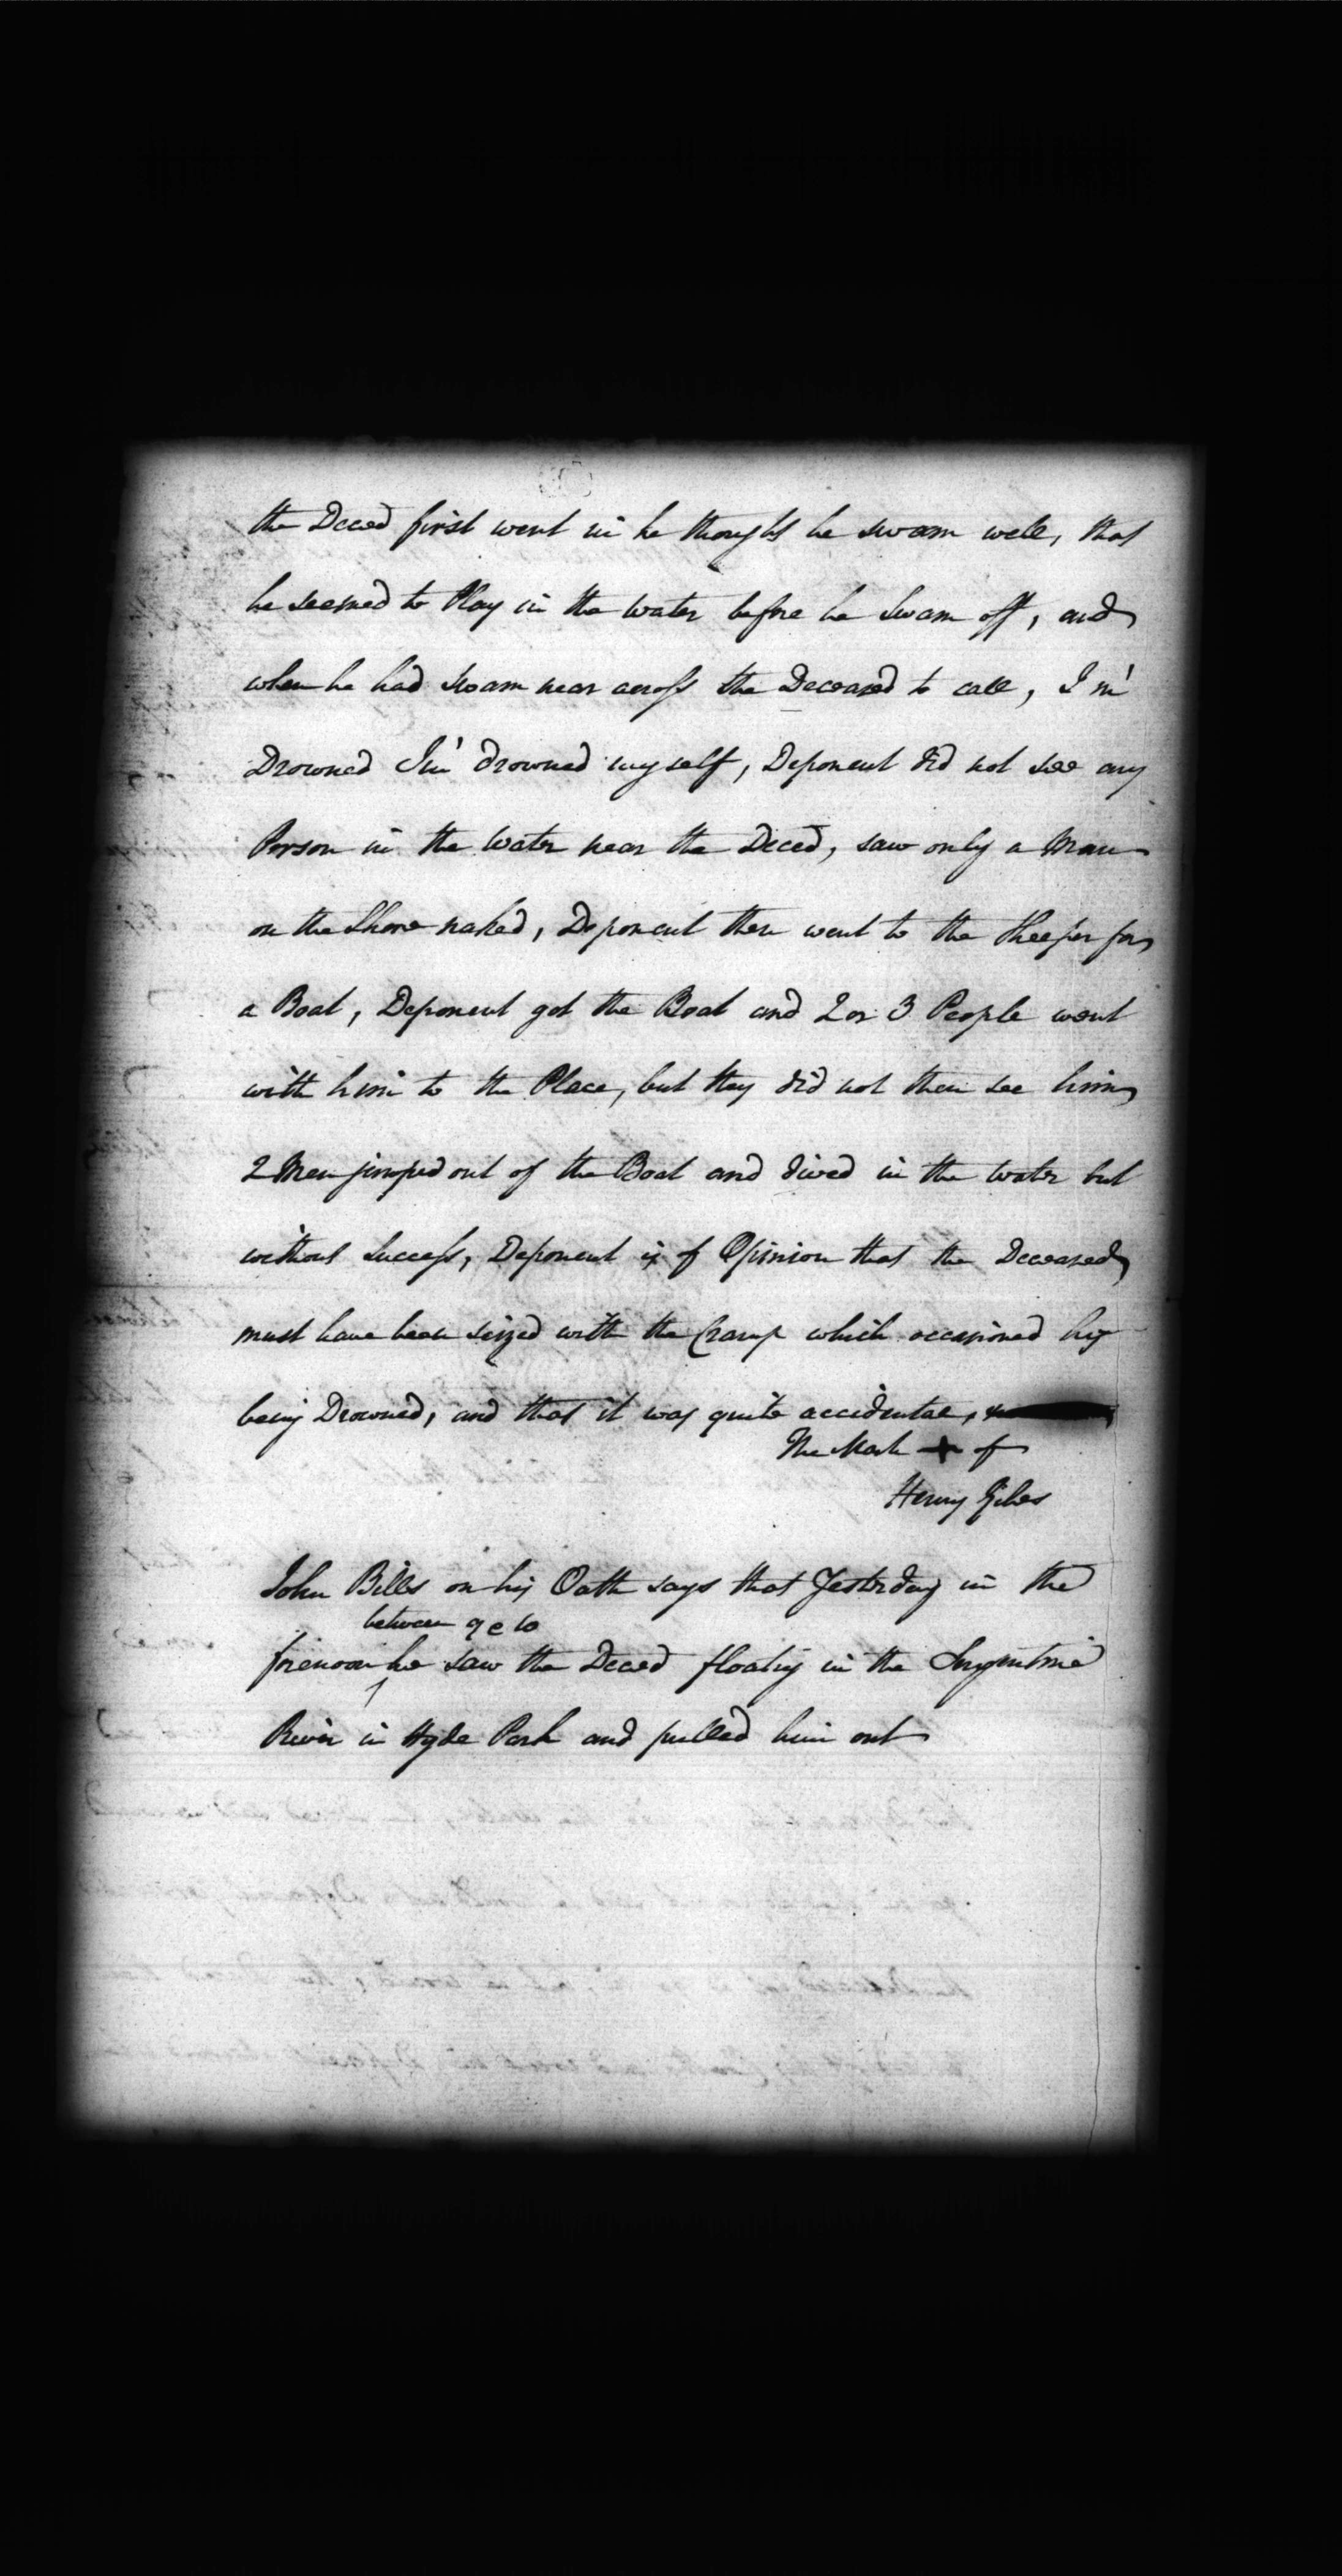 the Deced first went in he thought he swam well, that
he seemed to Play in the Water before he swam off, and
when he had swam near across the Deceased to call, I'm
Drowned I'm drowned myself, Deponent did not see any
Person in the Water near the Deced, saw only a Man
on the Shore naked, Deponent then went to the Keeper for
a Boat, Deponent got the Boat and 2 or 3 People went
with him to the Place, but they did not then see him
2 Men jumped out of the Boat and dived in the Water but
without Success, Deponent is of Opinion that the Deceased
must have been seized with the Cramp which occasioned his
being Drowned, and that it was quite accidental,
The Mark + of
Henry Giles
John Bills on his Oath says that Yesterday in the
between 9 & 10
forenoon he saw the Deced floating in the Serpentine
River in Hyde Park and pulled him out